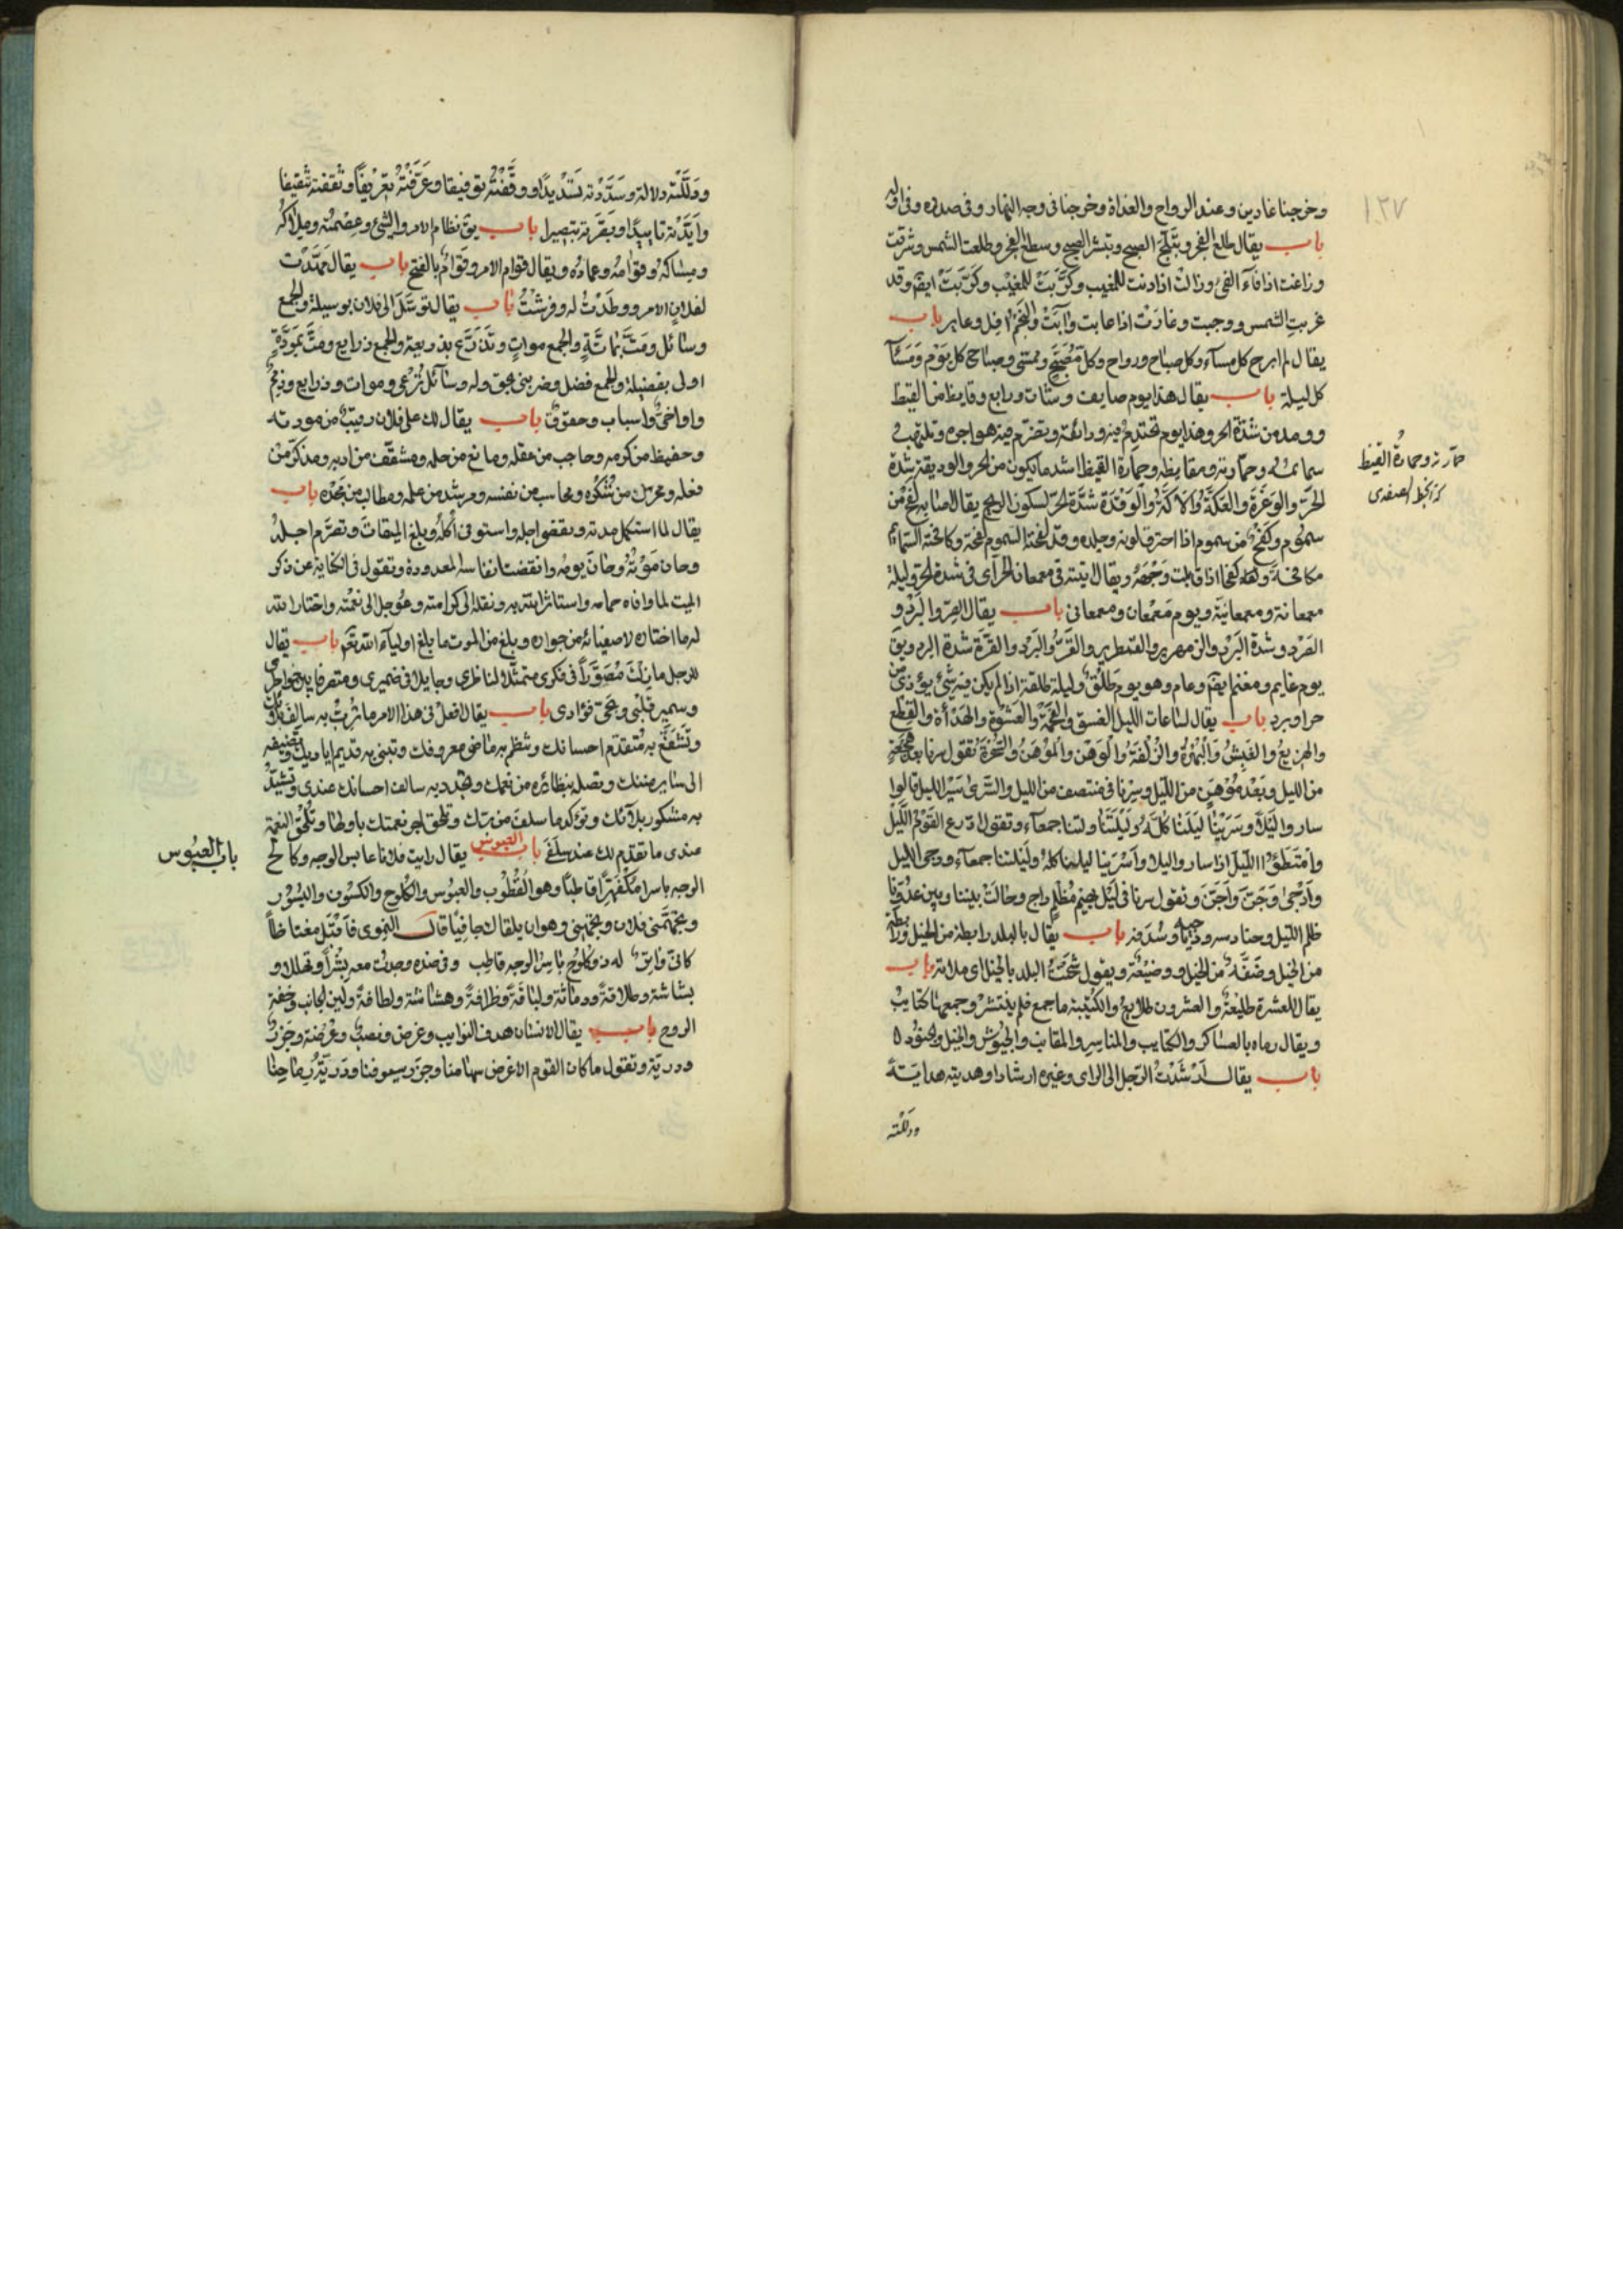 ١٢٧
وخرجنا غادين وعند الرواح والغداة وخرجنا في وجه النهار وفي صدره وفي اوله
باب يقال طلع الفجر وتبلّج الصبح وتبشر الصبح وسطع الفجر وطلعت الشمس وشرقت
وزاغت اذا فآء الفئ وزالت اذا دنت للمغيب وكَرَبَتْ للمغيب وكَرَبَتْ ايضا وقد
غربت الشمس ووجبت وغارت اذا غابت وآبَتْ والنجم افل وغاير باب
يقال لم ابرح كل مسآء وكل صباح ورواح وكل مُصْبَحٍ وممسى وصباح كل يوم ومسآء
كل ليلة باب يقال هذا يوم صايف وشات ورابع وقايظ من القيظ
وومد من شدّة الحر وهذا يوم تحتدم فيه وديقته وتضرّم فيه هواجره وتلتهب
سمائمه وحمّارته ومقايظه وحمارّة القيظ اشد ما يكون من الحر والوديقة شدة
الحرّ والوَغْرَةُ والعَكَّةُ والأكّةُ والوَقْدَة شدّة الحرّ لسكون الريح يقال اصابه لفح من
سموم وكفح من سموم اذا احترق لونه وجلده وقد لفحته السموم لفحة وكافحته السمائم
مكافحة اذا قابلت وَجْهَهُ ويقال تيته في معمعان الحر اى في شدة الحر وليلة
معمعانة ومعمعانيّة ويوم مَعْمَعان ومعمعاني باب يقال الصِرّ والبَرْد و
الصَرْد وشدة البَرْد والزمهرير والقمطرير والقَرّ والبَرْد والقِرّة شدة البرد ويق
يوم غايم ومغيم ايضا وعام وهو يوم طَلْقٌ وليلة طلقة اذا لم يكن فيه شئ يؤذى من
حر او برد باب يقال لساعات الليل الغسق والفحمة والعَشْوَة والهدْأة والقِطْع
والهزيع والغَبَشُ والبُهْرَةُ والزُلْفَةُ والوَهْن والمَوْهِنُ والسُحْرَةُ تقول سرنا بعد هجعة
من الليل وبَعْدَ مَوْهِنٍ من الليل وسِرْنا في منتصف من الليل والسُرى سَيْر الليل قالوا
ساروا لَيْلاً وسَرَيْنا لَيْلَتنا كُلَّهُ ولَيْلَتَنا ولتنا جمعآء وتقول ادّرع القَوْمُ اللَّيْل
وامتَطَوُا اللّيْلَ اذا ساروا ليلا واسْرَيْنا ليلنا كله ولَيْلتنا جمعآء ودجى الليل
وأدْجَى وجَنَّ وأجَنَّ وتقول سرنا في لَيْل بهيم مُظْلِم داج وحالَتْ بيننا وبين عدوّنا
ظلم الليل وحنادسه ودَياجيه وسُدَفه باب يقال بالبلد رابطة من الخيل ورابطة
من الخيل وضَفَّةٌ من الخيل ووضيعة ويقول شحنت البلد بالخيل اى ملاته باب
يقال للعشرة طليعة والعشرون طلايع والكتيبة ما جمع فلم ينتشر وجمعها كتايب
ويقال رماه بالعساكر والكتايب والمناسر والمقانب والجيُوش والخيل والجنُود ه
باب يقال ارْشَدْتُ الرجل الى الراى وغيره ارشادا وهديته هدايَــة
ودلّلته
حمّارته وحمارّة القيظ
كذا بخط الصغدى
ودَلَّلْتُه دلالة وسَدّدْته تَسْدِيدًا ووقَّفْتُه توقيفا وعَرّفْتُه تَعْرِيفًا وثقفته تثقيفا
وايَّدْته تاييدًا وبَصَّرته تبصيرا باب يق نظام الامر والشئ وعِصْمتُه ومِلاَكُه
ومِسَاكُه وقِوَامُه وعمادُه ويقال قِوَام الامر وقَوامٌ بالفتح باب يقال مَهَّدْت
لفلان الامر ووطّدْتُ له وفرشْتُ باب يقال توسّل الى فلان بوسيلة والجمع
وسائل ومَتَّ بماتّةٍ والجمع مواتٍ وتذرّع بذريعة والجمع ذرايع ومتَّ بمَوَدَّةٍ
اولى بفضيلة والجمع فضل وضربني بحق وله وسآئل تُرعى وموات وذرايع وذِمَمٌ
واواخىّ واسباب وحقوق باب يقال لك على فلان رقيبٌ من مودته
وحفيظ من كرمه وحاجب من عقله ومانع من حلمه ومثقّف من ادبه ومذكّر من
فعله ومحرك من شُكْرُه ومحاسب من نفسه ومرشد من علمه ومطالب من مَجْدِه باب
يقال لما استكمل مدته وتقضى اجله واستوفى اُكُلَه وبلغ الميقات وتصرّم اجــله
وحان مَوْتُهُ وحَانَ يومُه وانقضت انفاسه المعدودة وتقول في الكناية عن ذكر
الميت لما وافاه حمامه واستاثر الله به ونقله الى كرامته وعُوجل الى نعْمَته واختار الله
له ما اختاره لاصفيائه من جواره وبلغ من الموت ما بلغ اوليآء الله نعَم باب يقال
للرجل ما زِلْتَ مُصَوَّراً في فكرى متمثّلا لناظرى وجايلا في ضميرى ومتصرفا بين خواطرى
وسمير قلْبى ونجىّ فؤادى باب يقال افعلْ في هذا الامر ما تَرُبُّ به سالف
وتَشْفَعُ به مُتقدّم احسانك وتنظم به ماضى معروفك وتبنى به قديم اياديك وتضيفه
الى ساير مننك وتصله بنظائره من نعمك وتجدد به سالف احسانك عندى وتُشيّد
به مشكور بلآئك وتؤكد ما سلف من برّك وتلحق اخر نعمتك باولها وتُلْحِق النعمة
عندى ما تقدّم لك عند سلَفى باب العبوس يقال رايت فلانا عابس الوجه وكالح
باب العبُوس
الوجه باسرا مُكْفَهِرًّا قاطبًا وهو القُطُوب والعبُوس والكُلوح والكسُوف والبُسُوْر
وتجهَّمَنى فلان وتجهّمنى وهو ان يلقاك جافِيًا قاك النحوى فاَقْبَل مغتاظاً
كانّ وَابِقٌ له ذو كلُوح بَاسِرُ الوجه قاطِب وفي ضده وجدت معه بِشْراً وتهللا و
بشاشة وطلاقةً ودماثة ولبَاقةً وظرافةً وهشاشة ولطافةً ولين الجانب وخفة
الروح باب يقال الانسان هدف النوايب وغرض ونصبٌ وعُرضة وجَزرٌ
ودريّة وتقول ما كان القوم الا غرض سهامنا وجزر سيوفنا ودَرِيّة رماحِنا